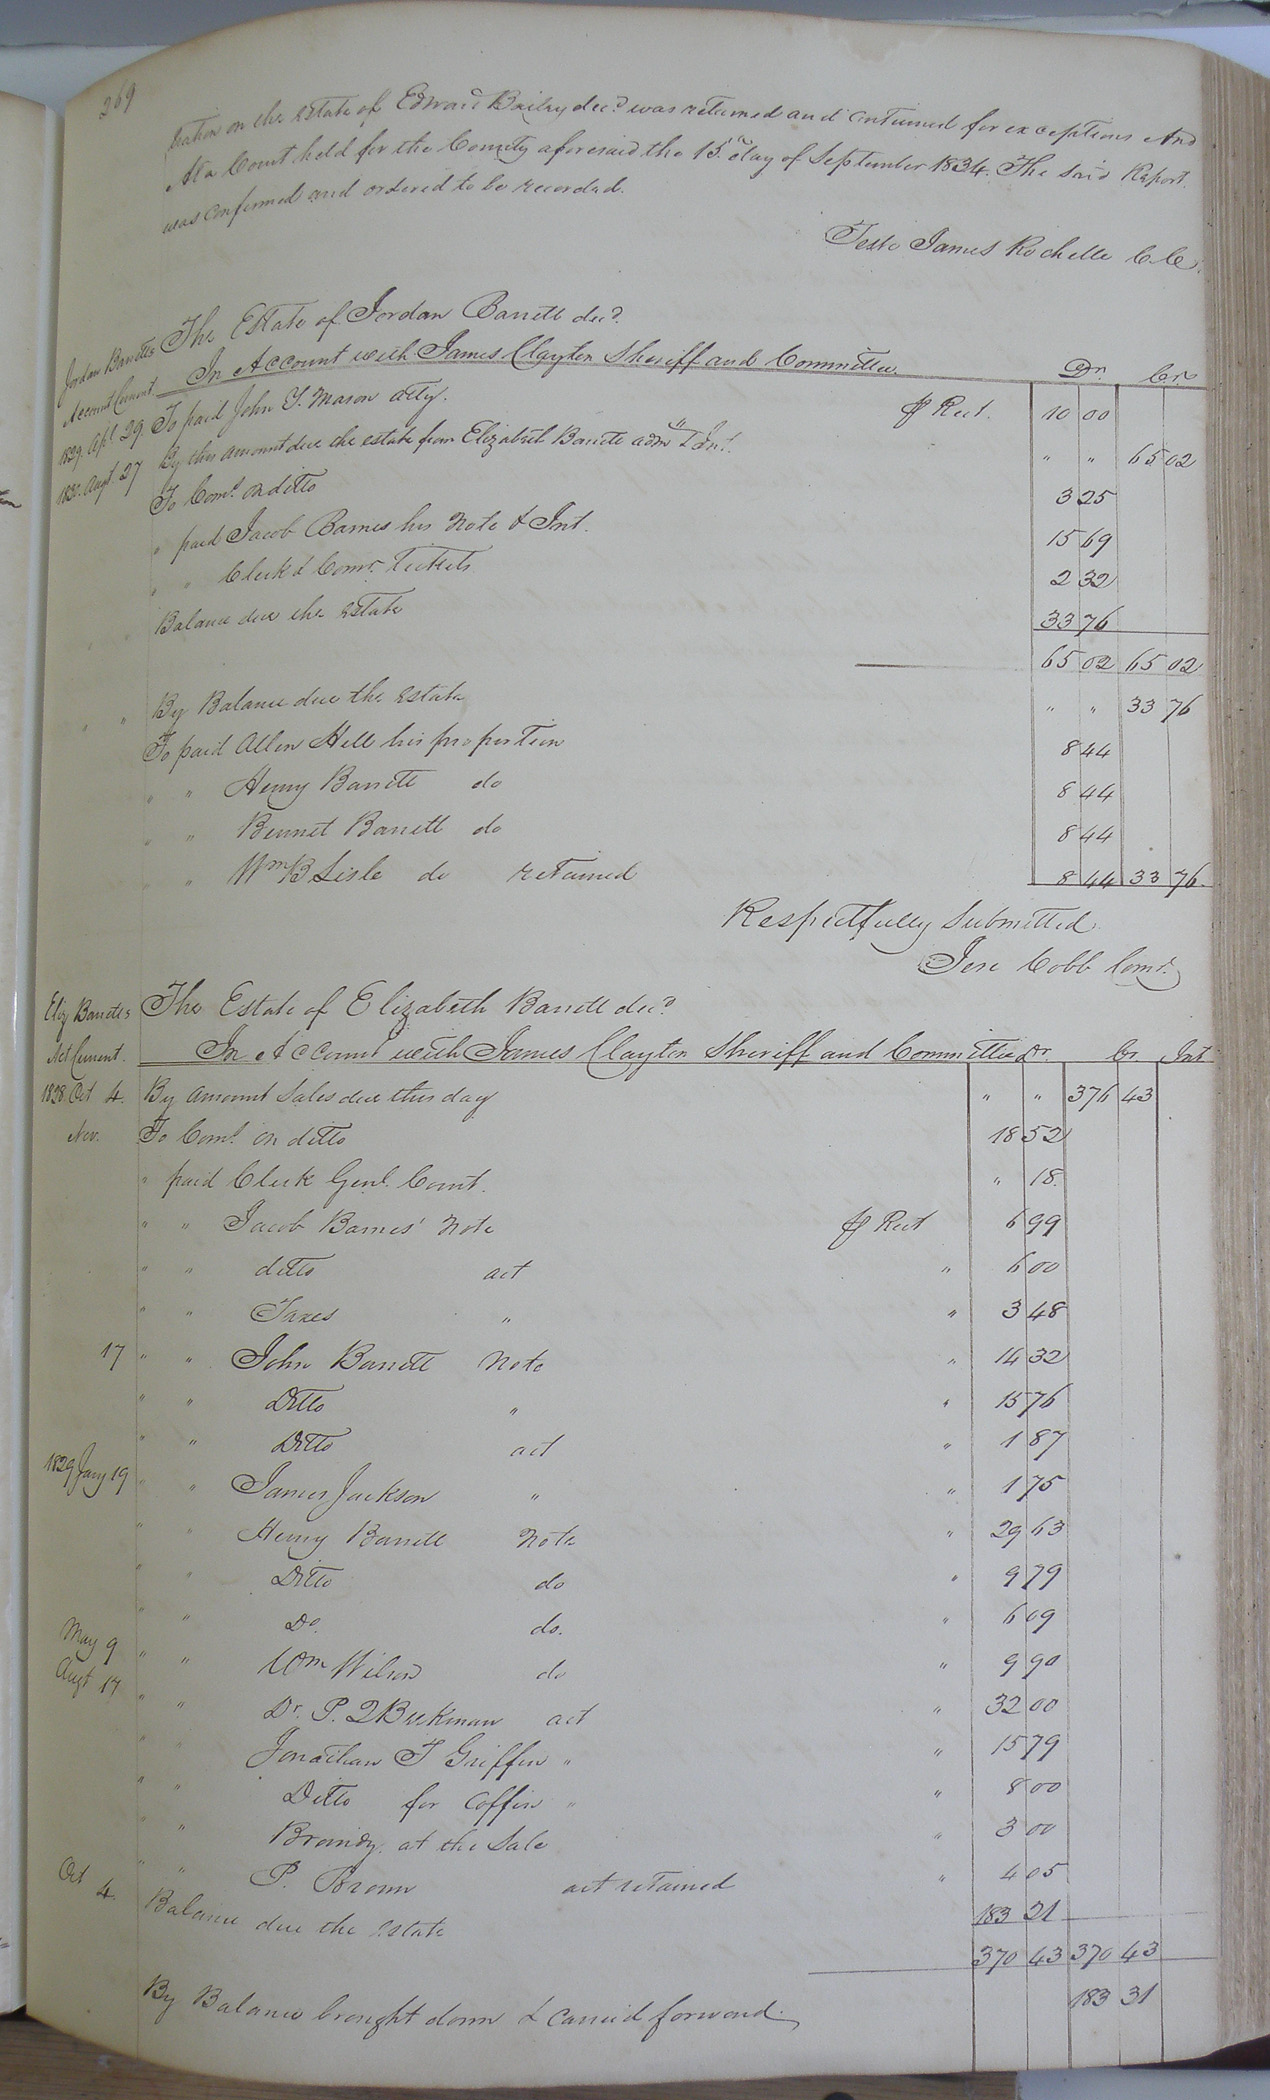 269
tration on the Estate of Edward Bailey decd was returned and continued for exceptions And
At a Court held for the County aforesaid the 15th day of September 1834. The said Report
was confirmed and ordered to be recorded.
Teste James Rochelle C.C.
Jordan Barretts Account Current
The Estate of Jordan Barrett decd.
In Account with James Clayton Sheriff and Committee Dr. Cr.
1829. Apl 29. To paid John Y. Mason atty. ⅌ Rect. 10 00
1830. Augt. 27 By this amount due the estate from Elizabeth Barrett admx & Int. " " 65 02
To Coms. on ditto 3 25
" paid Jacob Barnes his Note & Int. 15 69
" " Clerk & Comr. Tickets 2 32
" Balance due the Estate 33 76
65 02 65 02
" " By Balance due the Estate " " 33 76
To paid Allen Hill his proportion 8 44
" " Henry Barrett do 8 44
" " Bennet Barrett do 8 44
" " Wm B Lisle do retained 8 44 33 76.
Respectfully Submitted
Jere Cobb Comr.
Eliz Barretts Act Current.
The Estate of Elizabeth Barrett decd
In Account with James Clayton Sheriff and Committee Dr. Cr. Int
1828 Oct 4. By amount Sales due this day " " 376 43
Nov. To Coms. on ditto 18 52
" paid Clerk Genl. Court. " 18.
" " Jacob Barnes' Note ⅌ Rect 6 99
" " ditto act " 6 00
" " Taxes " " 3 48
17 " " John Barrett Note " 14 32
" " Ditto " " 15 76
" " Ditto act " 1 87
1829 Jany 19 " " James Jackson " " 1 75
" " Henry Barrett Note " 29 63
" " Ditto do " 9 79
" " Do. do. " 6 09
May 9 " " Wm Wilson do " 9 90
Augt 17 " " Dr. P. 2 Beekman act " 32 00
" " Jonathan T Griffin " " 15 79
" " Ditto for Coffin " " 8 00
" " Brandy at the Sale " 3 00
" " P. Brown act retained " 4 05
Oct 4. Balance due the Estate 183 31
370 43 370 43
By Balance brought down & carried forward. 183 31